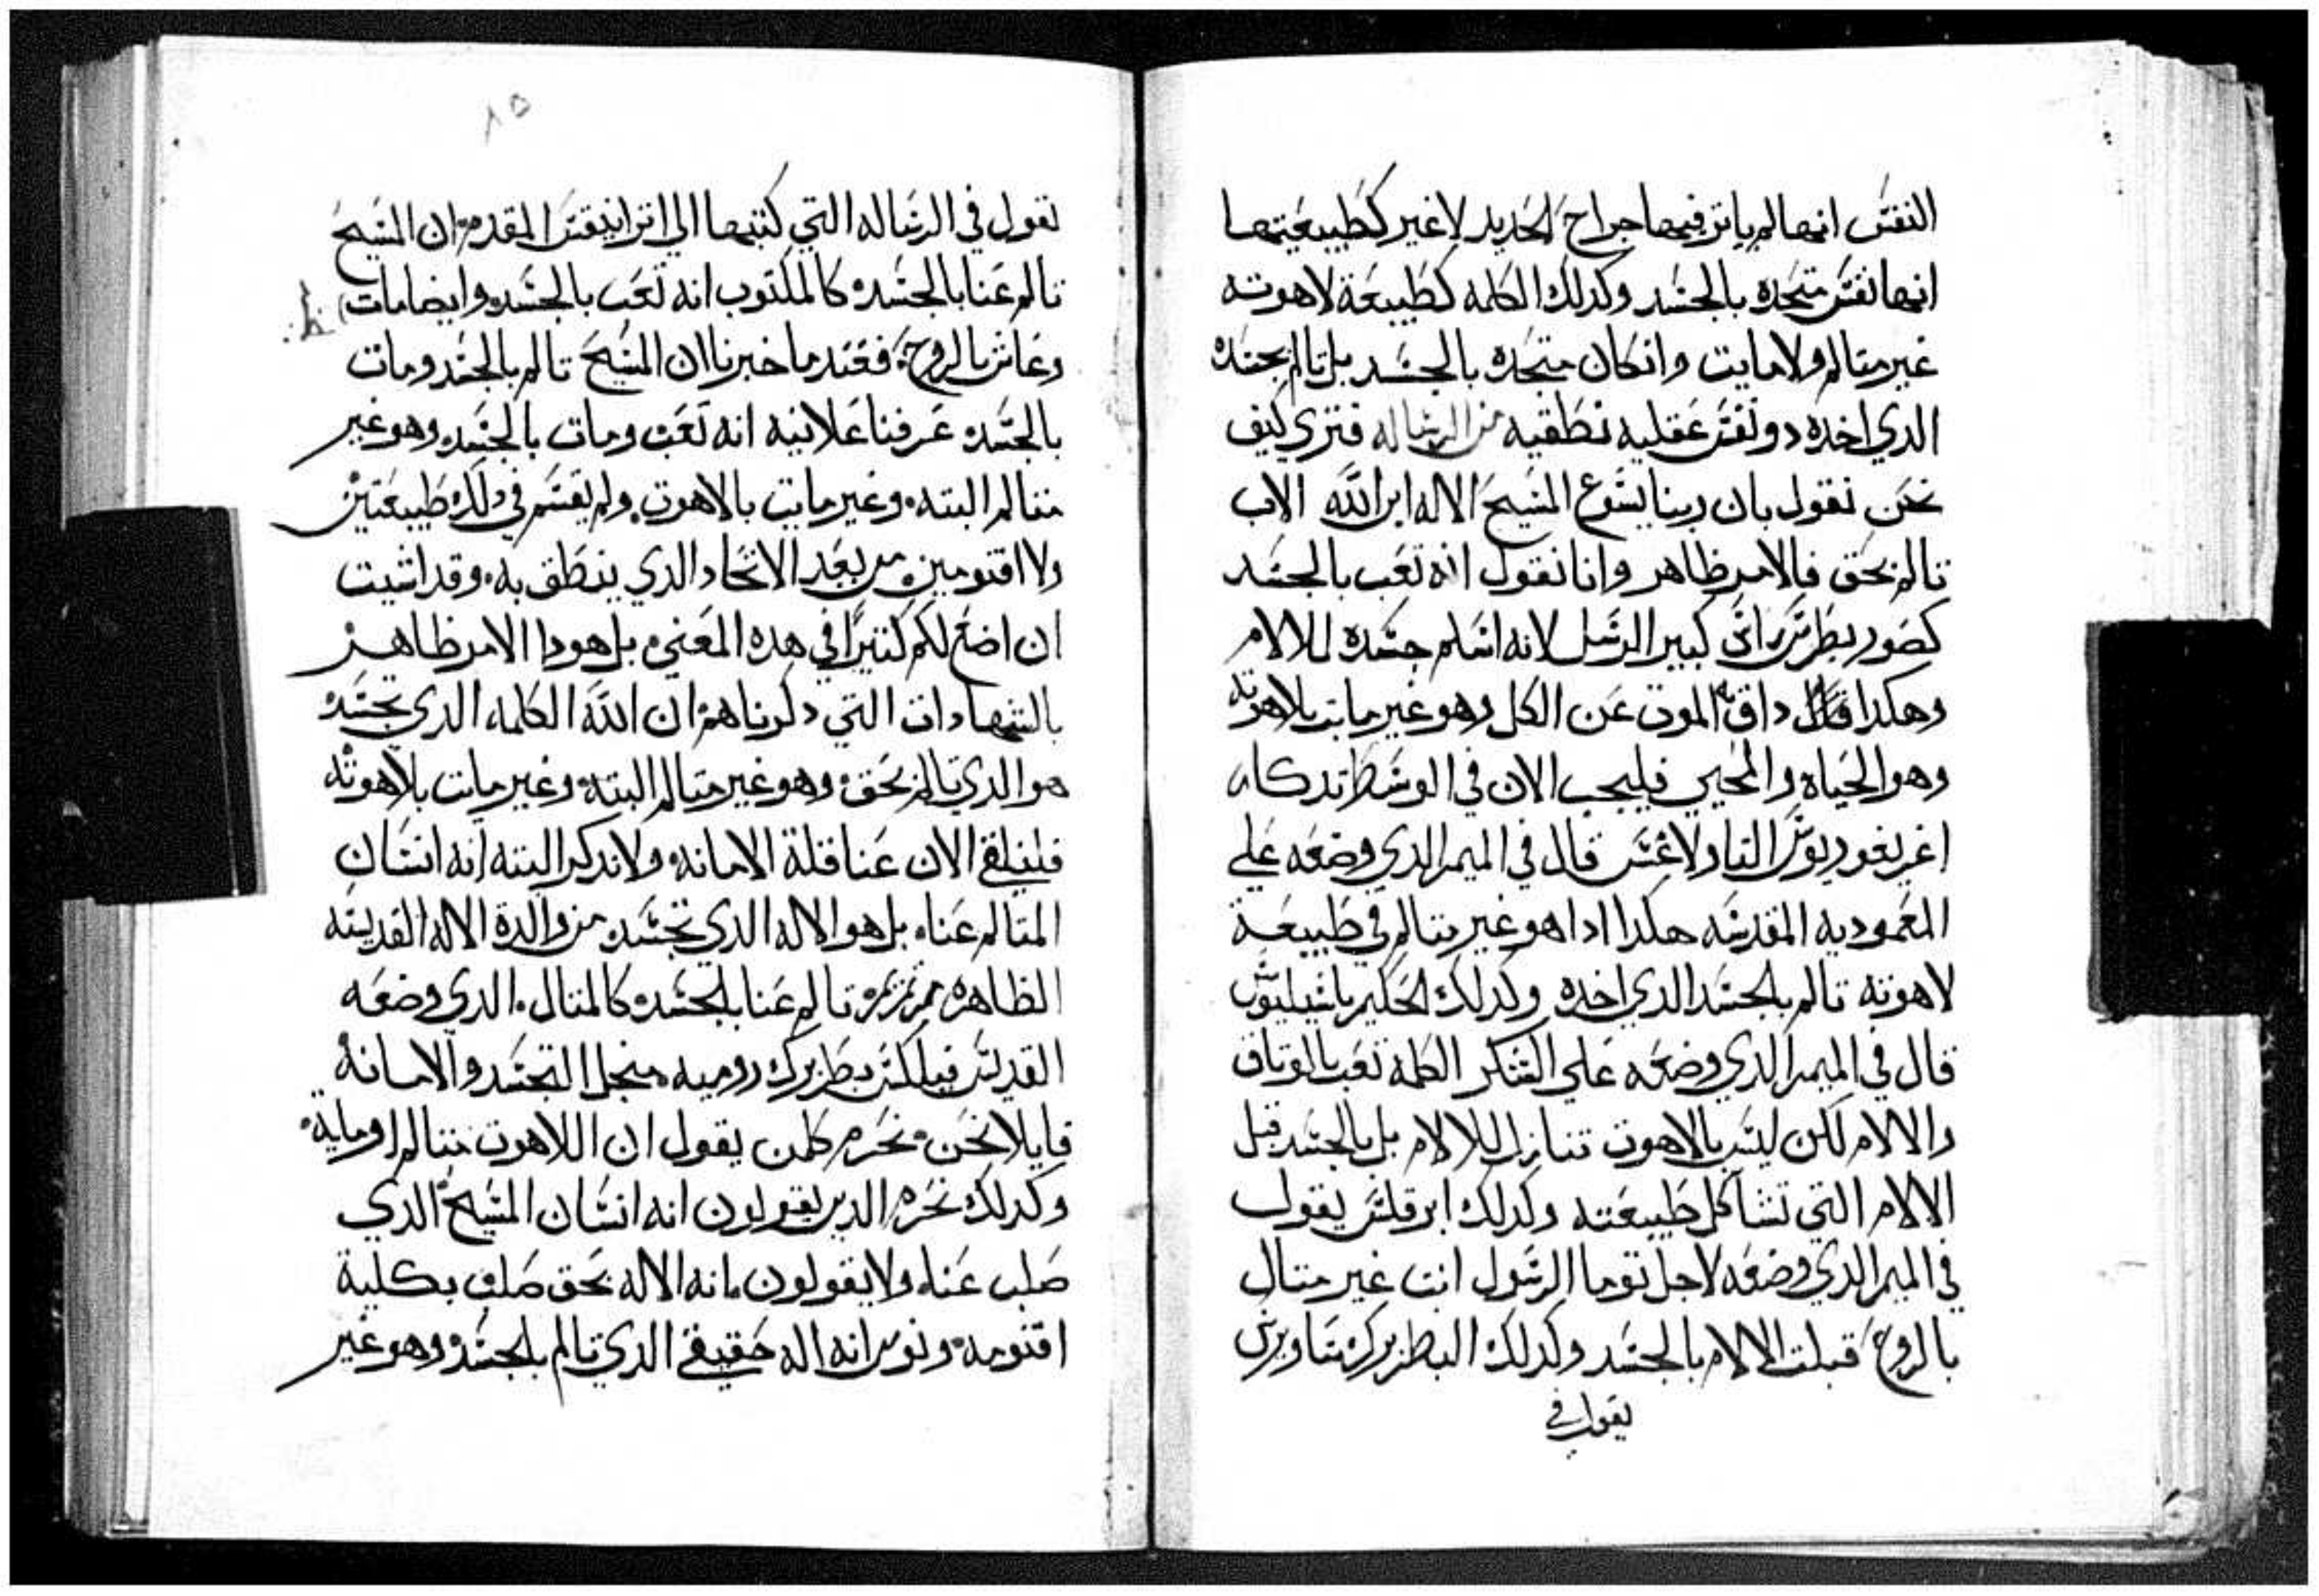 النفس انها لم ياتر فيها جراح الحديد لا غير كطبيعتها
انها نفس متحده بالجسد وكدلك الكلمه كطبيعة لاهوته
غير متالم ولا مايت وانكان متحده بالجسد بل تالم بجسده
الدي اخده دو نفس عقليه نطقيه من الرساله فتري كيف
نحن نقول بان ربنا يسوع المسيح الاله ابن الله الاب
تالم بحق فالامر ظاهر وانا نقول انه تعب بالجسد
كصور بطرس راس كبير الرسل لانه اسلم جسده للالام
وهكدا قال داق الموت عن الكل وهو غير مايت بلاهوته
وهو الحياه والمحيي فليجب الان في الوسط تدكار
اغريغوريوس التاولاغس قال في الميمر الدي وضعه علي
المعموديه المقدسه هكدا ادا هو غير متالم في طبيعة
لاهوته تالم بالجسد الدي اخده وكدلك الحكيم باسيليوس
قال في الميمر الدي وضعه علي الشكر الكلمة تعب بالوتاق
والالام لكن ليس بالاهوت تنازل للالام بل بالجسد قبل
الالام التي تشاكل طبيعته وكدلك ابرقلس يقول
في الميمر الدي وضعه لاجل توما الرسول انت غير متال
بالروح قبلت الالام بالجسد وكدلك البطريرك ساويرس
يقول في
٨٥
نقول في الرساله التي كتبها الي اترانيقس المقدم ان المسيح
تالم عنا بالجسد كالمكتوب انه تعب بالجسد وايضا مات
وعاش بالروح فعند ما خبرنا ان المسيح تالم بالجسد ومات
بالجسد عرفنا علانيه انه تعب ومات بالجسد وهو غير
متالم البته وغير مايت بالاهوت ولم يقسم في دلك طبيعتين
ولا اقنومين من بعد الاتحاد الدي ينطق به وقد اشيت
ان اضع لكم كتيرًا في هده المعني بل هودا الامر ظاهر
بالشهادات التي دكرناهم ان الله الكلمه الدي تجسد
هو الدي تالم بحق وهو غير متالم البته وغير مايت بلاهوته
فلنلقي الان عنا قلة الامانه ولا ندكر البته انه انسان
المتالم عنا بل هو الاله الدي تجسد من والدة الاله القديسه
الطاهره مرتمريم تالم عنا بالجسد كالمتال الدي وضعه
القديس فيلكس بطريرك روميه منجل التجسد والامانه
قايلا نحن نحرم كلمن يقول ان اللاهوت متالم او مايت
وكدلك نحرم الدين يقولون انه انسان المسيح الدي
صلب عنا ولا يقولون بانه الاله بحق صلب بكلية
اقنومه ونومن انه اله حقيقي الدي تالم بالجسد وهو غير